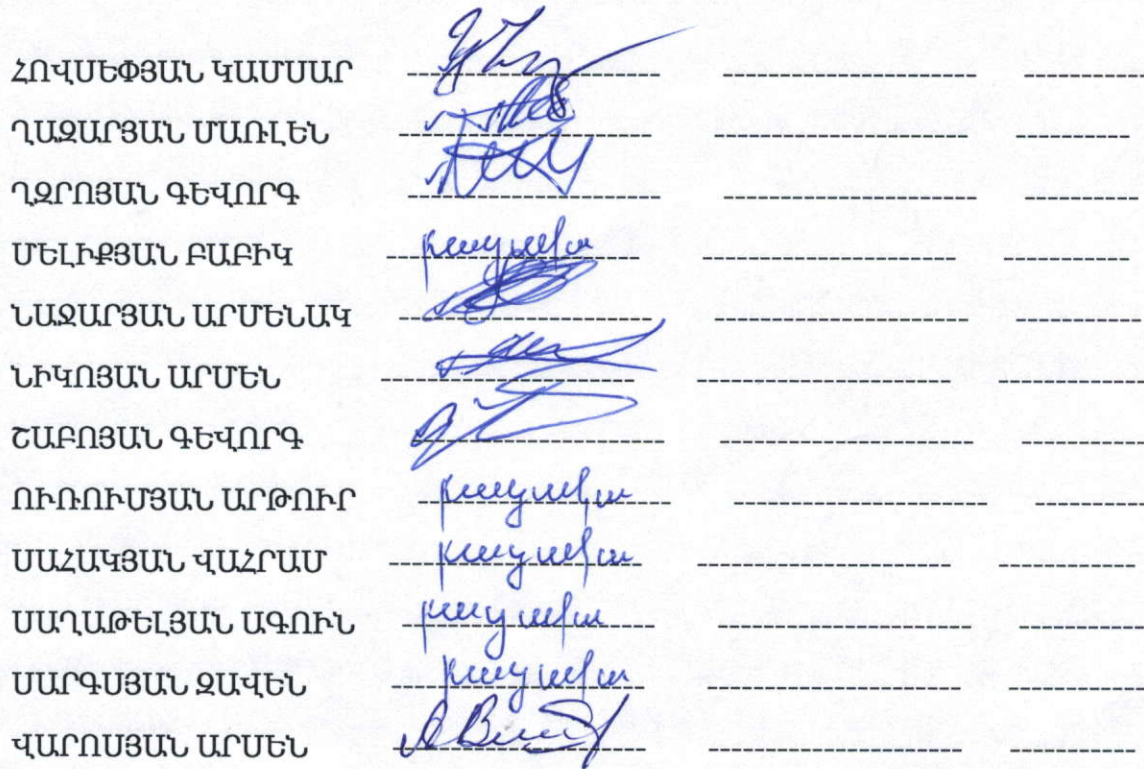 ՀՈՎՍԵՓՅԱՆ ԿԱՄՍԱՐ
ՂԱԶԱՐՅԱՆ ՄԱՌԼԵՆ
ՂՋՐՈՅԱՆ ԳԵՎՈՐԳ
ՄԵԼԻՔՅԱՆ ԲԱԲԻԿ բացակա
ՆԱՋԱՐՅԱՆ ԱՐՄԵՆԱԿ
ՆԻԿՈՅԱՆ ԱՐՄԵՆ
ՇԱԲՈՅԱՆ ԳԵՎՈՐԳ
ՈՒՌՈՒՍՅԱՆ ԱՐԹՈՒՐ բացակա
ՍԱՀԱԿՅԱՆ ՎԱՀՐԱՄ բացակա
ՍԱՂԱԹԵԼՅԱՆ ԱԳՈՒՆ բացակա
ՍԱՐԳՍՅԱՆ ԶԱՎԵՆ բացակա
ՎԱՐՈՍՅԱՆ ԱՐՍԵՆ